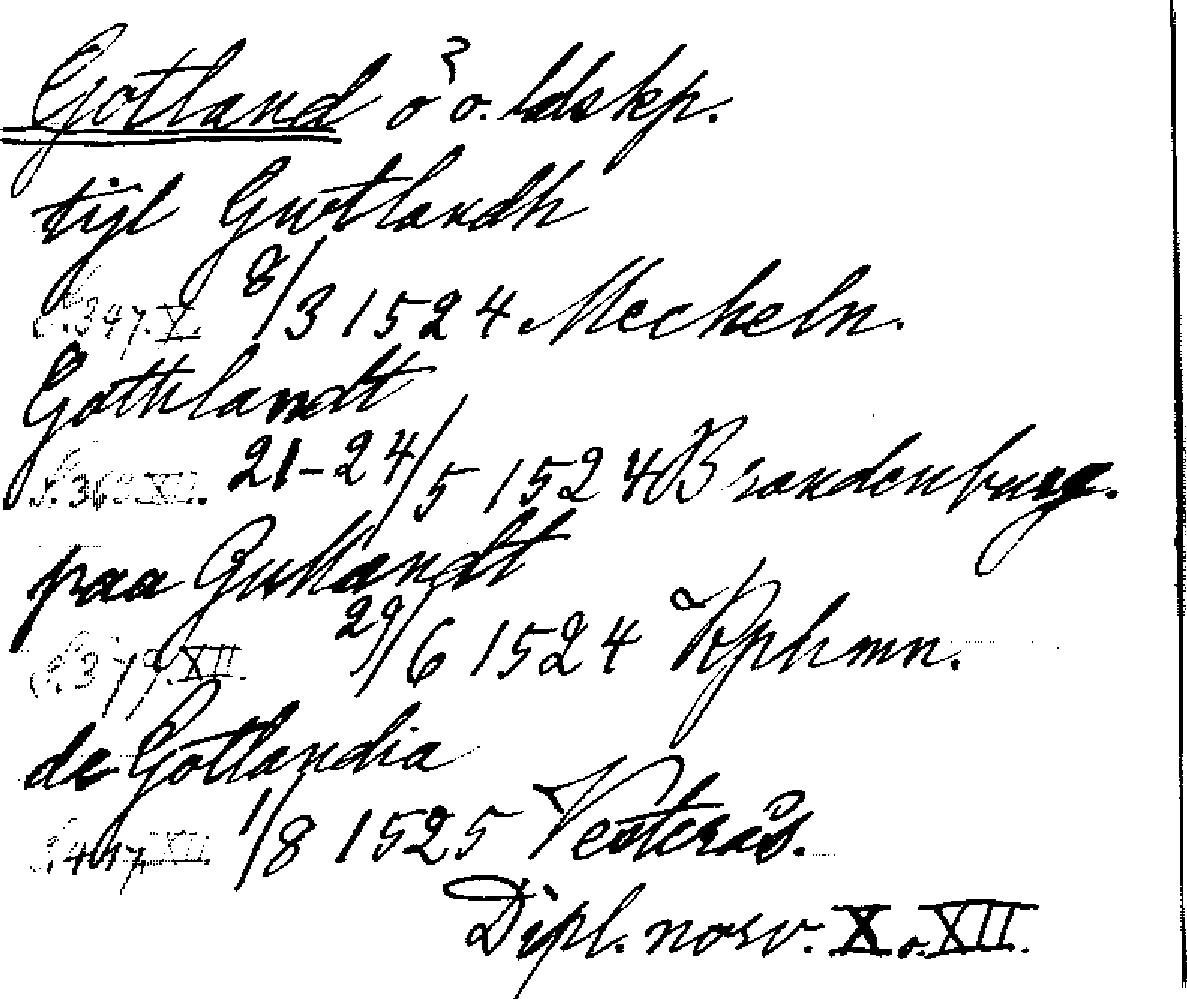 Gotland ö o. ldskp.
tijl Gwtlandh
8/3 1524 Mecheln.
Gothlandt
21-24/5 1524 Brandenburg.
paa Gullandt
S. 379. XII. 29/6 1524 Kphmn.
de Gotlandia
1/8 1525 Vesterås.
Dipl. norv. X o. XII.